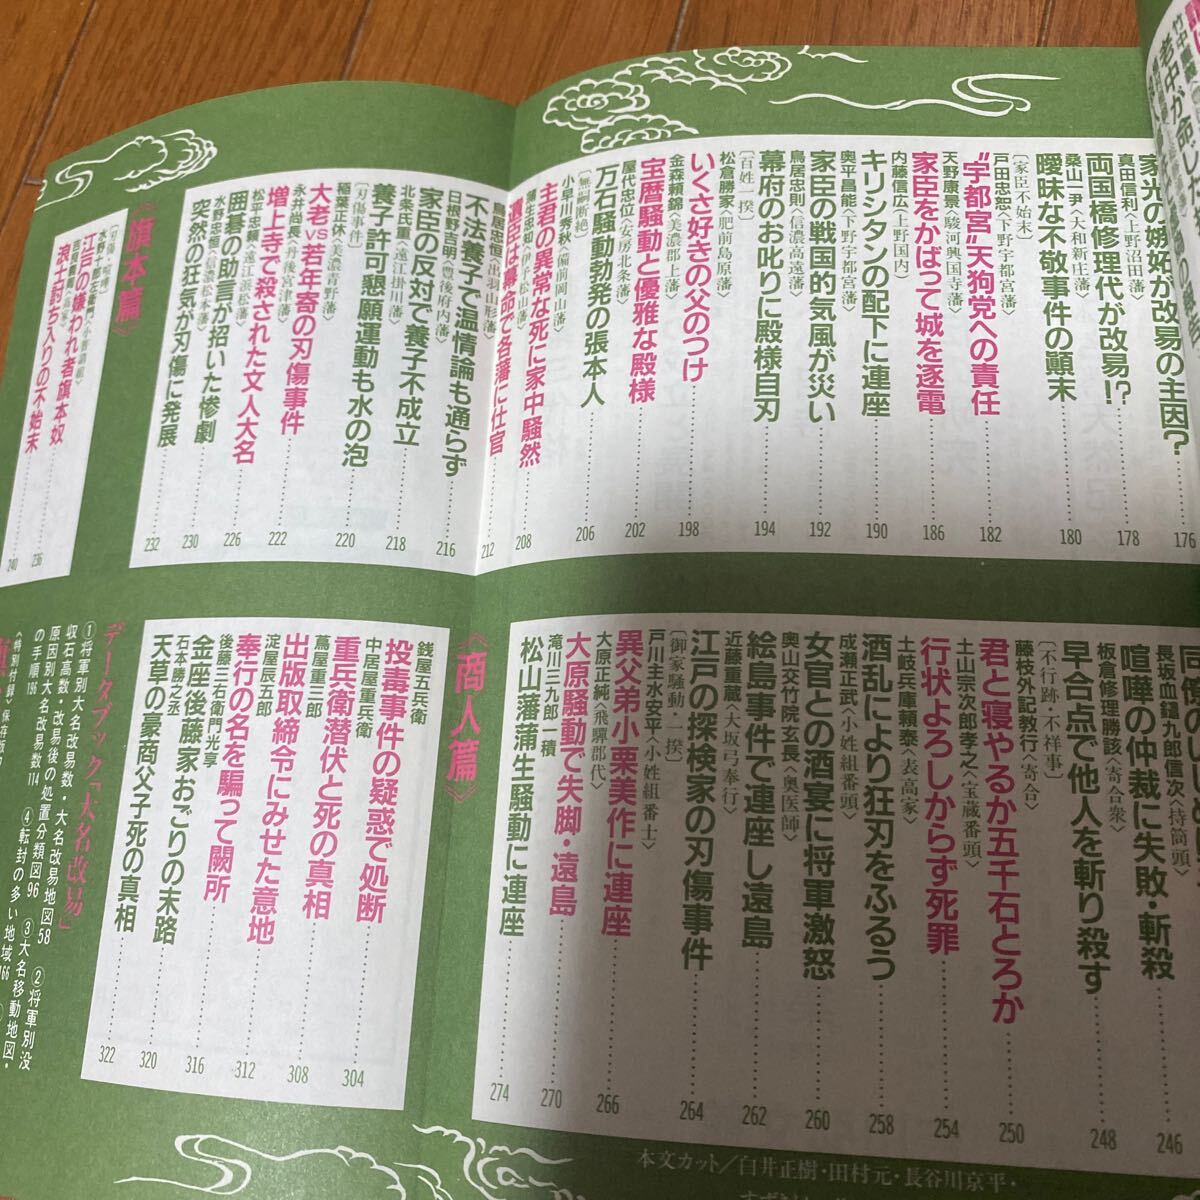 家光の嫉妬が改易の主因?……176
真田信利〈上野沼田藩〉
両国橋修理代が改易!?……178
桑山一尹〈大和新庄藩〉
曖昧な不敬事件の顛末……180
[家臣不始末]
戸田忠恕〈下野宇都宮藩〉
"宇都宮"天狗党への責任……182
天野康景〈駿河興国寺藩〉
家臣をかばって城を逐電……186
内藤信広〈上野国内〉
キリシタンの配下に連座……190
奥平昌能〈下野宇都宮藩〉
家臣の戦国的気風が災い……192
鳥居忠則〈信濃高遠藩〉
幕府のお叱りに殿様自刃……194
[百姓一揆]
松倉勝家〈肥前島原藩〉
いくさ好きの父のつけ……198
金森頼錦〈美濃郡上藩〉
宝暦騒動と優雅な殿様……202
屋代忠位〈安房北条藩〉
万石騒動勃発の張本人……206
[無嗣断絶]
小早川秀秋〈備前岡山藩〉
主君の異常な死に家中騒然……208
蒲生忠知〈伊予松山藩〉
遺臣は幕命で各藩に仕官……212
鳥居忠恒〈出羽山形藩〉
不法養子で温情論も通らず……216
日根野吉明〈豊後府内藩〉
家臣の反対で養子不成立……218
北条氏重〈遠江掛川藩〉
養子許可懇願運動も水の泡……220
[刃傷事件]
稲葉正休〈美濃青野藩〉
大老vs若年寄の刃傷事件……222
永井尚長〈丹後宮津藩〉
増上寺で殺された文人大名……226
松平忠賢〈遠江浜松藩〉
囲碁の助言が招いた惨劇……230
水野忠恒〈信濃松本藩〉
突然の狂気が刃傷に発展……232
《旗本篇》
水野十郎左衛門〈小普請組〉
江戸の嫌われ者旗本奴……236
浪士討ち入りの不始末……240
長坂血鑓九郎信次〈持筒頭〉
喧嘩の仲裁に失敗・斬殺……246
板倉修理勝該〈寄合衆〉
早合点で他人を斬り殺す……248
[不行跡・不祥事]
藤枝外記教行〈寄合〉
君と寝やるか五千石とろか……250
土山宗次郎孝之〈宝蔵番頭〉
行状よろしからず死罪……254
土岐兵庫頼泰〈表高家〉
酒乱により狂刃をふるう……258
成瀬正武〈小姓組番頭〉
女官との酒宴に将軍激怒……260
奥山交竹院玄長〈奥医師〉
絵島事件で連座し遠島……262
近藤重蔵〈大坂弓奉行〉
江戸の探検家の刃傷事件……264
[御家騒動・一揆]
戸川主水安平〈小姓組番士〉
異父弟小栗美作に連座……266
大原正純〈飛騨郡代〉
大原騒動で失脚・遠島……270
滝川三九郎一積
松山藩蒲生騒動に連座……274
《商人篇》
銭屋五兵衛
投毒事件の疑惑で処断……304
中居屋重兵衛
重兵衛潜伏と死の真相……308
蔦屋重三郎
出版取締令にみせた意地……312
淀屋辰五郎
奉行の名を騙って闕所……316
後藤三右衛門光亨
金座後藤家おごりの末路……320
石本勝之丞
天草の豪商父子死の真相……322
データブック「大名改易」
①将軍別大名改易数・大名改易地図58　②将軍別没
収石高数・改易後の処置分類図96　③大名移動地図・
原因別大名改易数114　④転封の多い地域166
の手順136
〈特別付録〉
本文カット／白井正樹・田村元・長谷川京平・